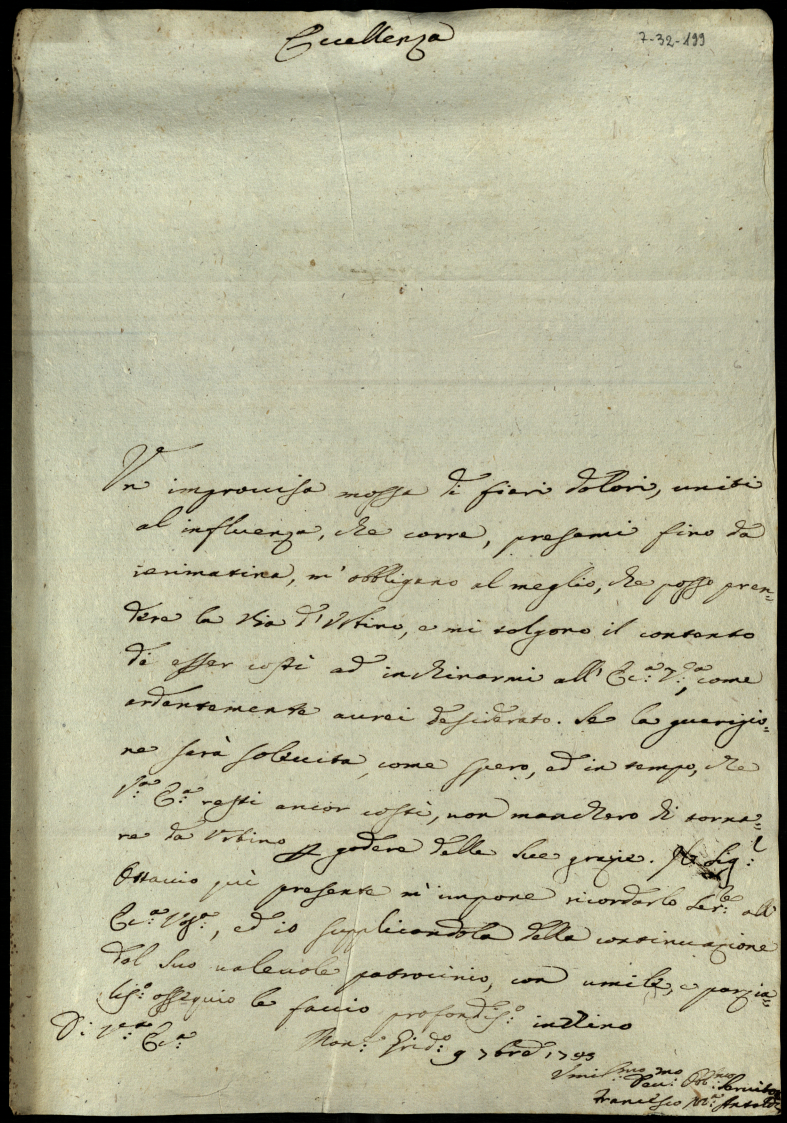 Eccellenza
7-32-199
Un improuisa mossa di fieri dolori, uniti
al influenza, che corre, presemi fino da
ierimatina, m'obbligano al meglio, che posso pren=
dere la via d'Vrbino, e mi tolgono il contento
di esser costì ad inchinarmi all' Ecc.ª V.ª, come
ardentemente aurei desiderato. Se la guarigio=
ne sarà sollecita, come spero, ed in tempo, che
V.ª Ecc.ª resti ancor costì, non mancherò di torna=
re da Vrbino a godere delle sue grazie. Il Sig.ʳ
Ottauio quì presente m'impone ricordarlo Ser.ʳᵉ all'
Ecc.ª Vrã, ed io supplicandola della continuazione
del suo ualeuole patrocinio, con umile, e parzia=
lis.º ossequio le faccio profondis.º inchino
Di V.ª Ecc.ª
9 7bre 17
Umil.mo Deu.mo Obb.mo Seruitore
Francesco M.ª Antaldi